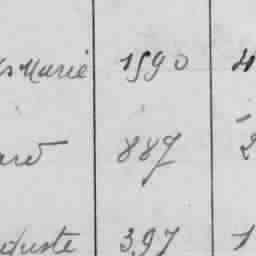 Marie 1590 4
ard 887 2
duste 397 1